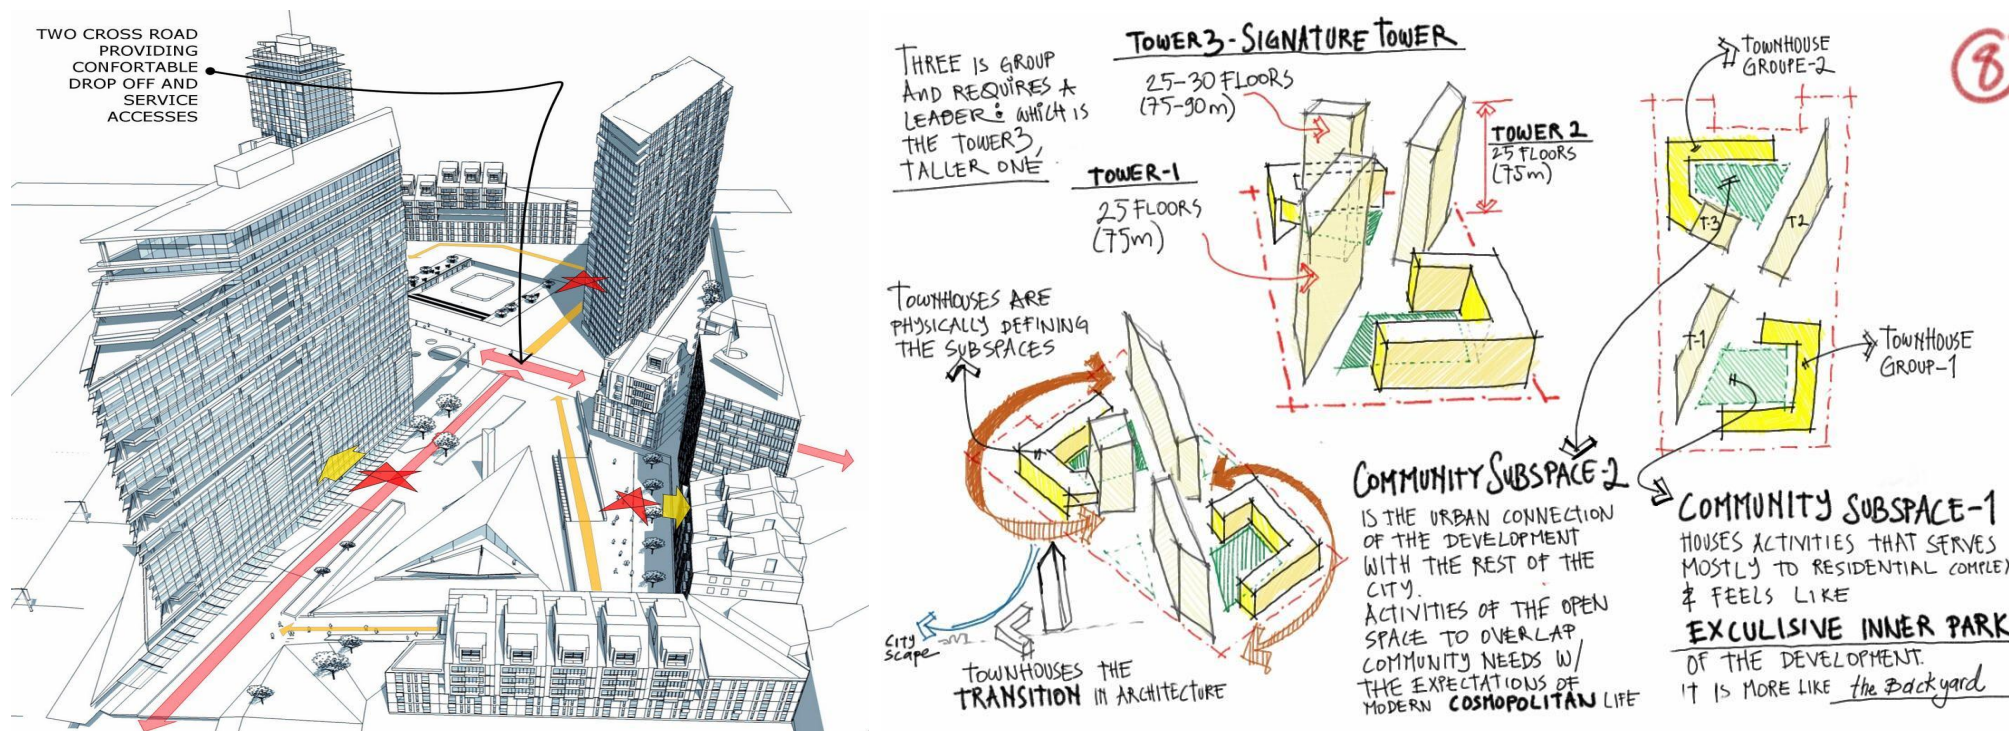 TWO CROSS ROAD
PROVIDING
CONFORTABLE
DROP OFF AND
SERVICE
ACCESSES
THREE IS GROUP
AND REQUIRES A
LEADER: WHICH IS
THE TOWER3,
TALLER ONE
TOWER3-SIGNATURE TOWER
25-30 FLOORS
(75-90m)
TOWER-1
25 FLOORS
(75m)
TOWER 2
25 FLOORS
(75m)
TOWNHOUSE
GROUPE-2
8
T-3
T2
T-1
TOWNHOUSE
GROUP-1
TOWNHOUSES ARE
PHYSICALLY DEFINING
THE SUBSPACES
CITY
scape
TOWNHOUSES THE
TRANSITION IN ARCHITECTURE
COMMUNITY SUBSPACE-2
IS THE URBAN CONNECTION
OF THE DEVELOPMENT
WITH THE REST OF THE
CITY.
ACTIVITIES OF THE OPEN
SPACE TO OVERLAP
COMMUNITY NEEDS W/
THE EXPECTATIONS OF
MODERN COSMOPOLITAN LIFE
COMMUNITY SUBSPACE-1
HOUSES ACTIVITIES THAT SERVES
MOSTLY TO RESIDENTIAL COMPLEX
& FEELS LIKE
EXCULISIVE INNER PARK
OF THE DEVELOPMENT.
IT IS MORE LIKE the Backyard